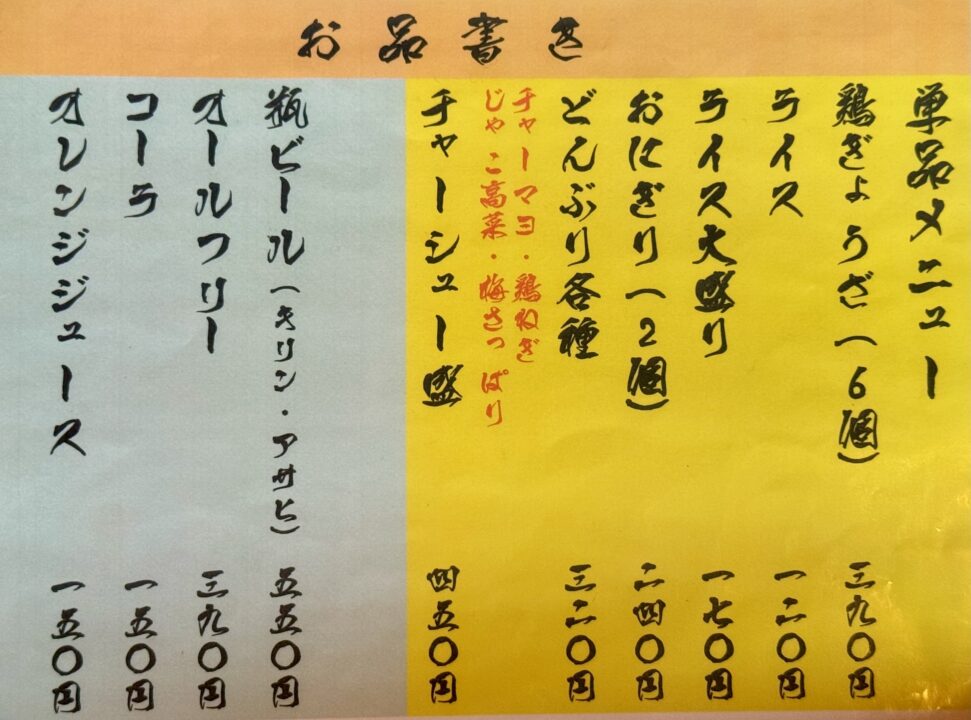 お品書き
単品メニュー
鶏ぎょうざ（6個） 三九〇円
ライス 一二〇円
ライス大盛り 一七〇円
おにぎり（2個） 二四〇円
どんぶり各種 三二〇円
チャーマヨ・鶏ねぎ
じゃこ高菜・梅さっぱり
チャーシュー盛 四五〇円
瓶ビール（キリン・アサヒ） 五五〇円
オールフリー 三九〇円
コーラ 一五〇円
オレンジジュース 一五〇円